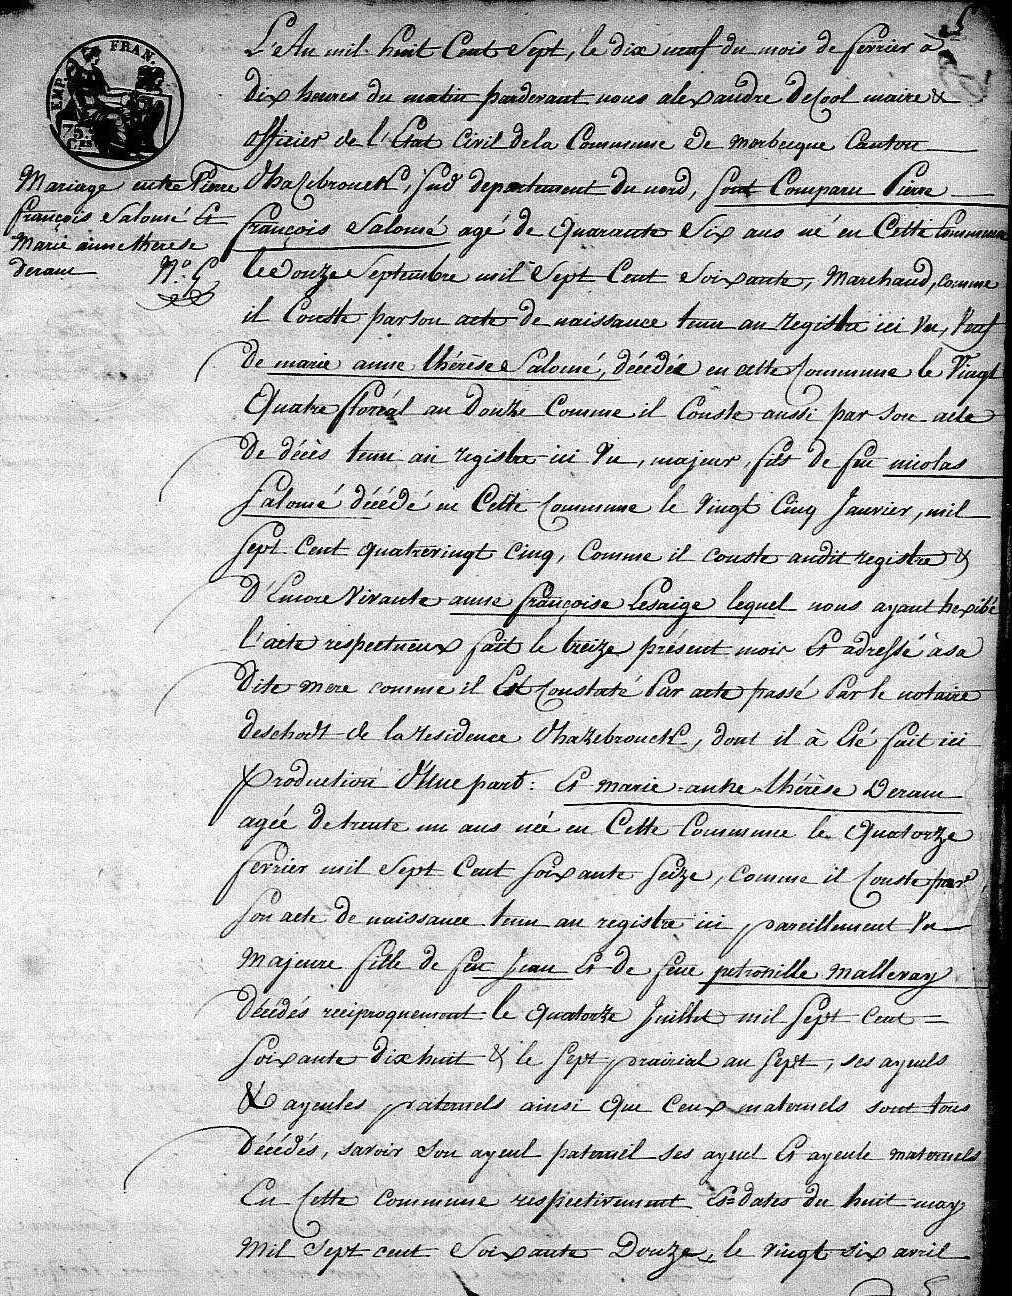 5
EMP. FRAN.
75
Mariage entre Pierre
françois Salomé Et
Marie anne therese
deram
N.º 5
L'An mil huit Cent Sept, le dix neuf du mois de fevrier a
dix heures du matin pardevant nous alexandre decool maire &
officier de l'Etat Civil de la Commune De morbecque Canton
d'hazebrouck, Sud departement du nord, sont Comparu Pierre
françois Salomé agé de Quarante Six ans né en Cette Commune
le douze Septembre mil Sept Cent Soixante, Marchand, comme
il Conste par son acte de naissance tenu au registre ici Vu, Veuf
de marie anne thérèse Salomé, décédée en cette Commune le Vingt
Quatre floréal an Douze Comme il Conste aussi par son acte
de décès tenu au registre ici Vu, majeur, fils de feu nicolas
Salomé décédé en Cette Commune le Vingt Cinq Janvier, mil
Sept Cent quatrevingt cinq, Comme il conste audit registre &
d'Encore Vivante anne françoise Lesaige lequel nous ayant hexibé
l'acte respectueux fait le treize présent mois Et adressé à sa
dite mere comme il Est Constaté Par acte passé Par le notaire
deschodt de la residence d'hazebrouck, dont il à Eté fait ici
production d'Une part: Et marie anne thérèse Deram
agée de trente un ans née en Cette Commune le Quatorze
fevrier mil Sept Cent Soixante Seize, comme il Conste par
Son acte de naissance tenu au registre ici pareillement Vu
Majeure fille de feu Jean Et de feue petronille malleray
décédés réciproquement le quatorze Juillet mil Sept cent =
soixante dix huit & le Sept prairial an Sept, ses ayeuls
& ayeules paternels ainsi que Ceux maternels sont tous
décédés, savoir Son ayeul paternel ses ayeul Et ayeule maternels
En Cette commune respectivement Es dates du huit may
Mil Sept cent Soixante Douze, le vingt six avril